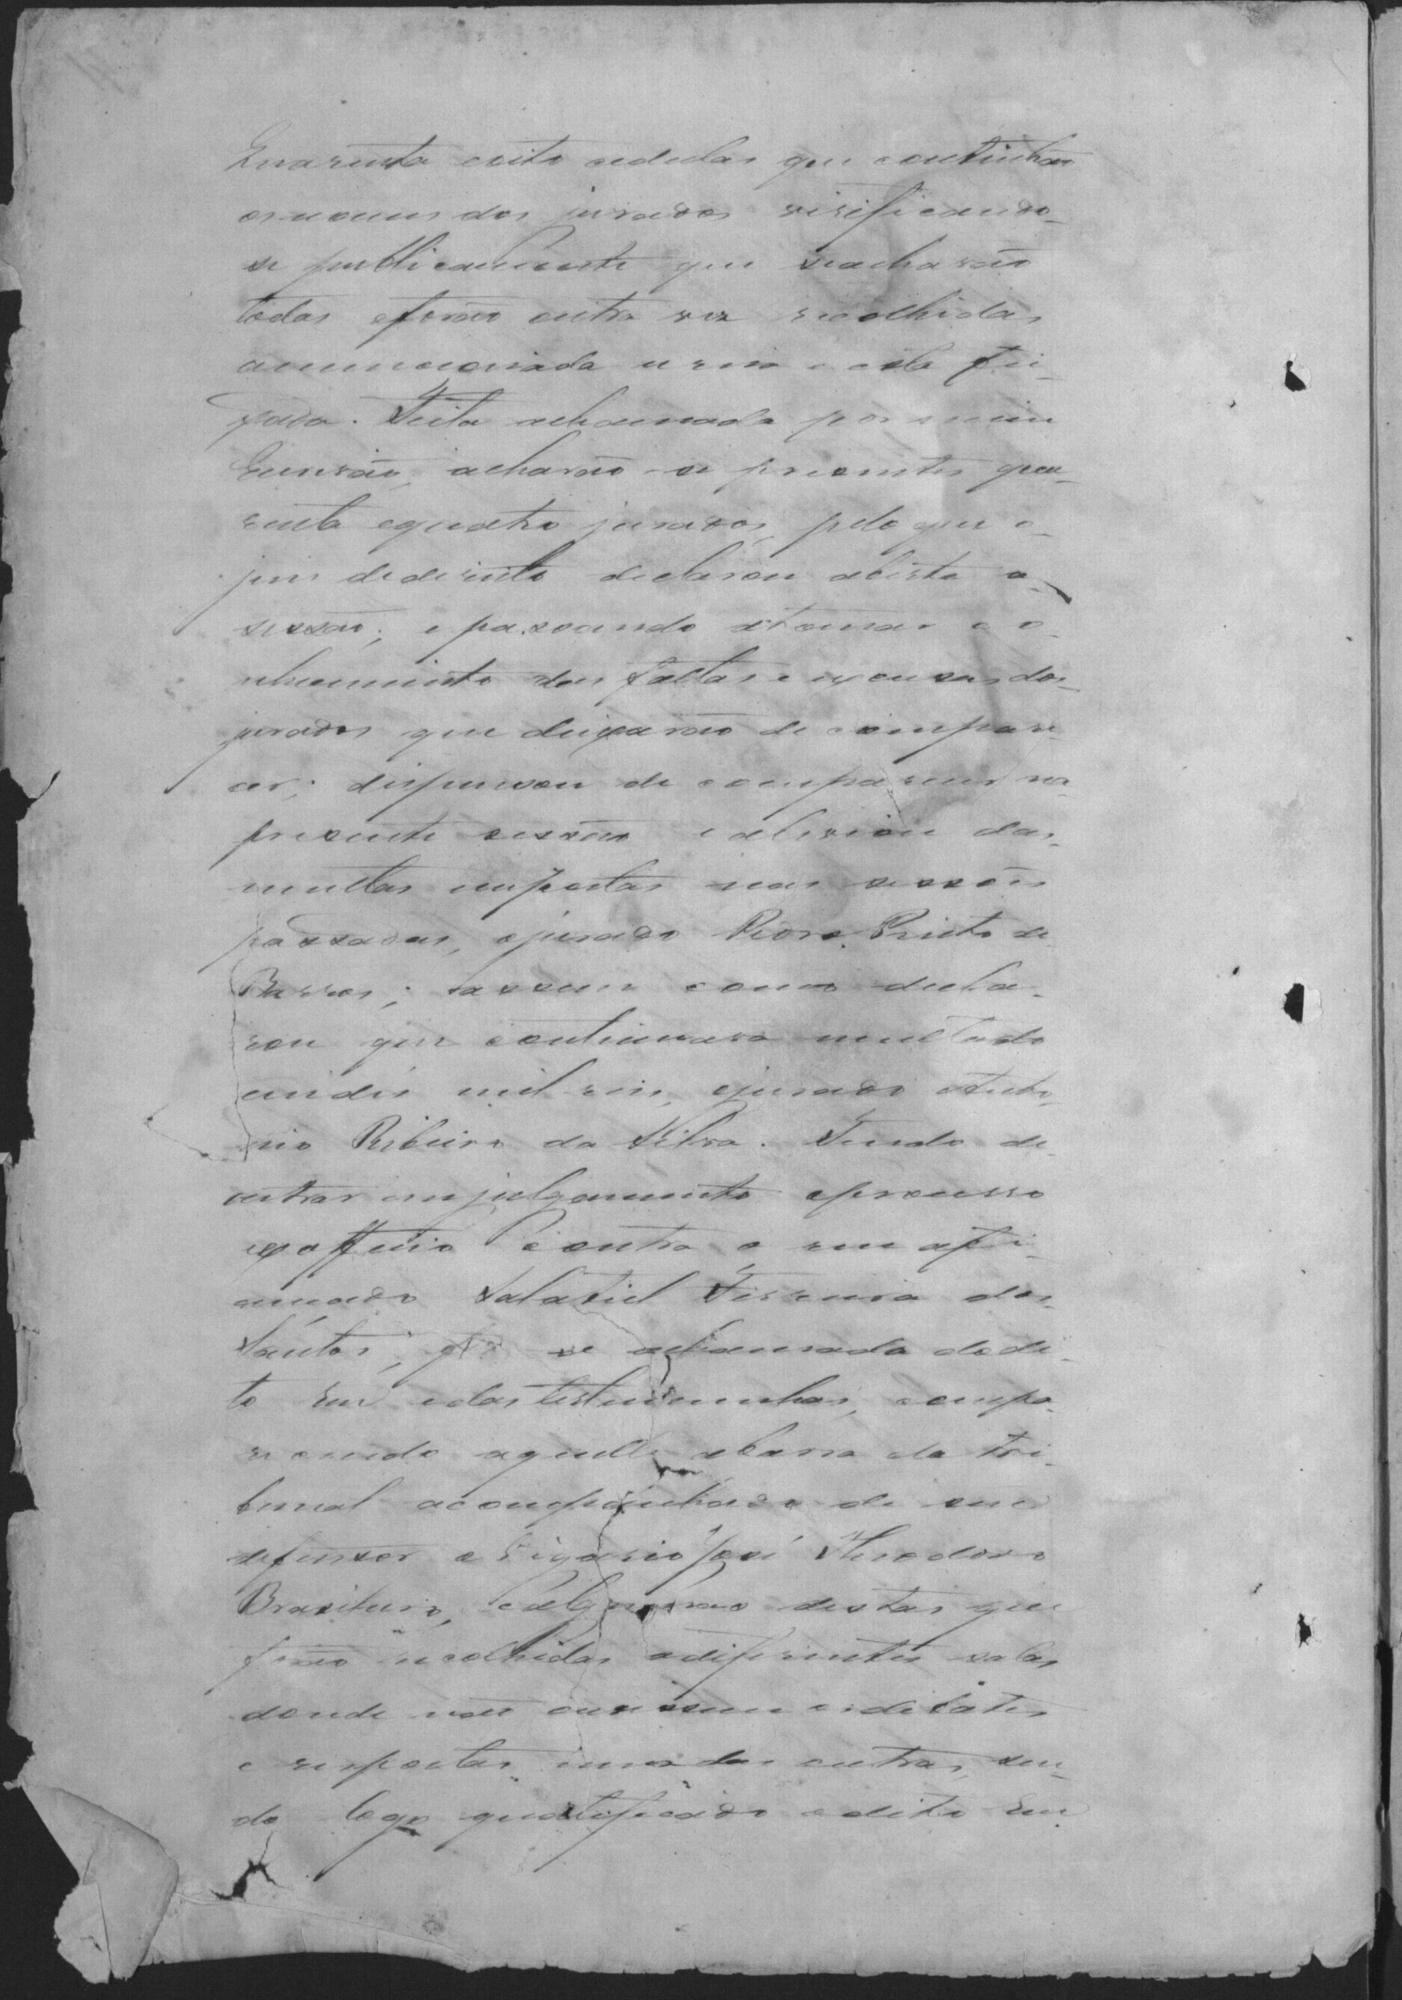 Quarenta eoito cedulas que continhão
osnomes dos jurados virificando-
se publicamente que seacharão
todas eforão outra vez recolhidas
amencionada urna e esta fei-
xada. Feita achamada por mim
Escrivão, acharão-se presentes qua-
renta equatro jurados, pelo que o
juis dedireito declarou aberta a
sessão; e passando atomar co-
nhecimento das faltas e excusas dos
jurados que deixarão de compare-
cer; dispensou de comparecer na
presente sessão e aliviou das
multas impostas nas sessões
passadas, ojurado Pedro Pinto de
Barros; assim como decla-
rou que continuava multado
emdés mil reis, ojurado Anto-
nio Ribeiro da Silva. Tendo de
entrar emjulgamento oprocesso
exofficio contra o reu afi-
ançado Salatiel Ferreira dos
Santos, fes se achamada dodi-
to Reu edastestemunhas, compa-
recendo aquelle abarra do tri-
bunal acompanhado de seu
defensor o Vigario José Theodoro
Brasileiro, ealgumas destas que
forão recolhidas adiferentes salas
donde não ouvissem osdebates
e respostas, umas das outras, sen-
do logo qualificado odito Reu